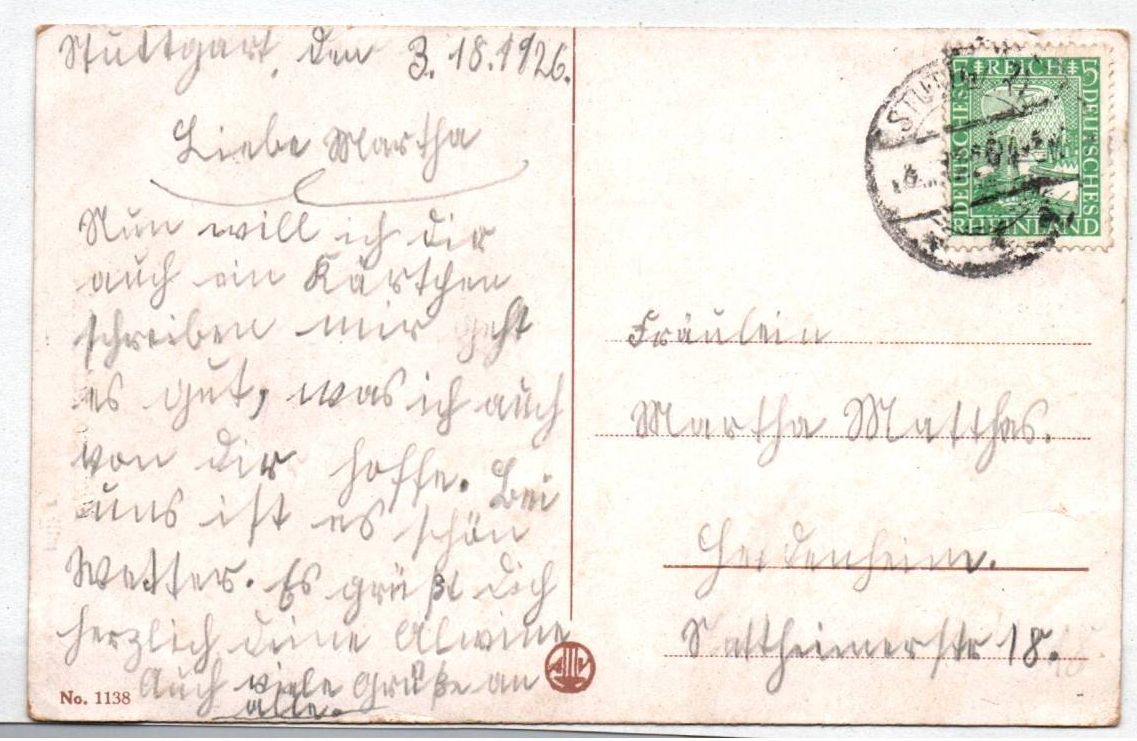 Stuttgart, den 3.18.1926.
Liebe Martha
Nun will ich dir
auch ein Kärtchen
schreiben mir geht
es gut, was ich auch
von dir hoffe. Bei
uns ist es schön
Wetter. Es grüßt dich
herzlich deine Alwine
Auch viele Grüße an
alle.
No. 1138
DEUTSCHES REICH
5 5
DEUTSCHES
RHEINLAND
Fräulein
Martha Matthes.
Heidenheim.
18.